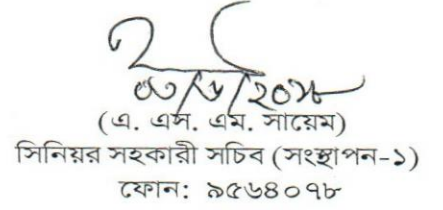 (এ. এস. এম. সায়েম)
সিনিয়র সহকারী সচিব (সংস্থাপন-১)
ফোন: ৯৫৬৪০৭৮